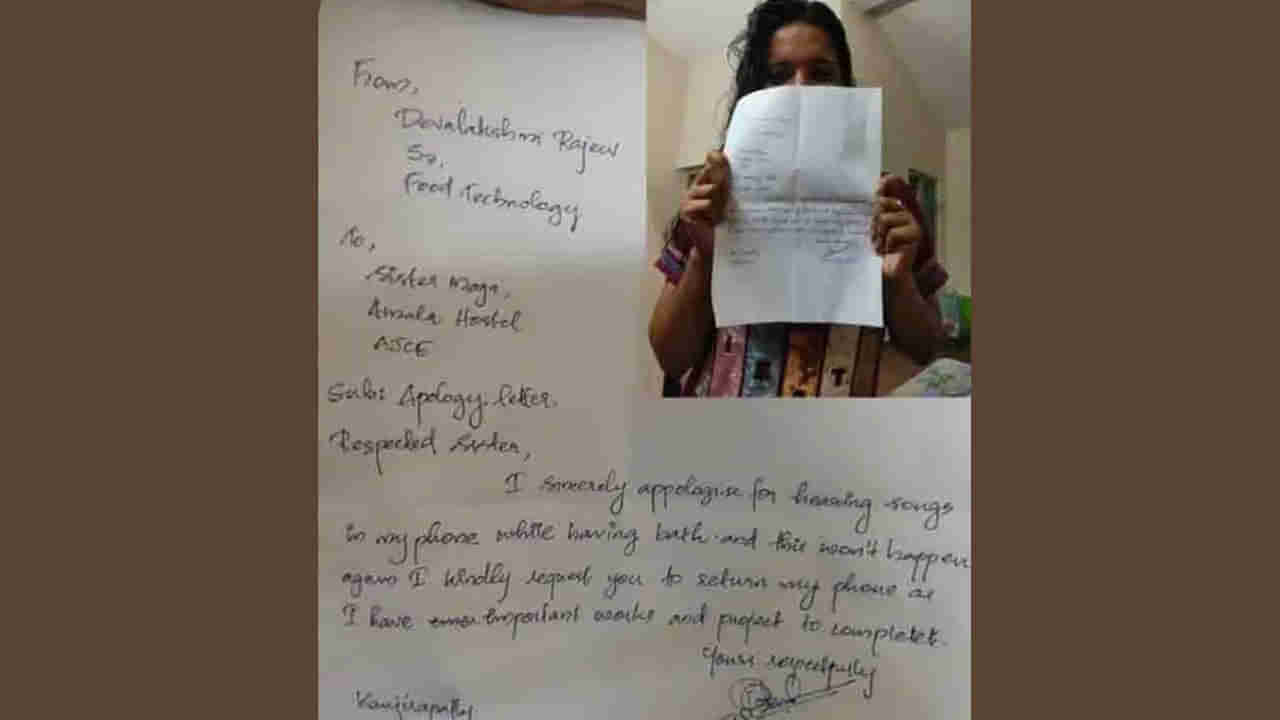 From,
Devalakshmi Rajeev
S2,
Food Technology
To,
Sister Maga,
Amala Hostel
AJCE
Sub: Apology letter.
Respected Sister,
I sincerely appologise for hearing songs
in my phone while having bath and this won't happen
again I kindly request you to return my phone as
I have important works and project to complete.
Yours respectfully
Kanjirapally